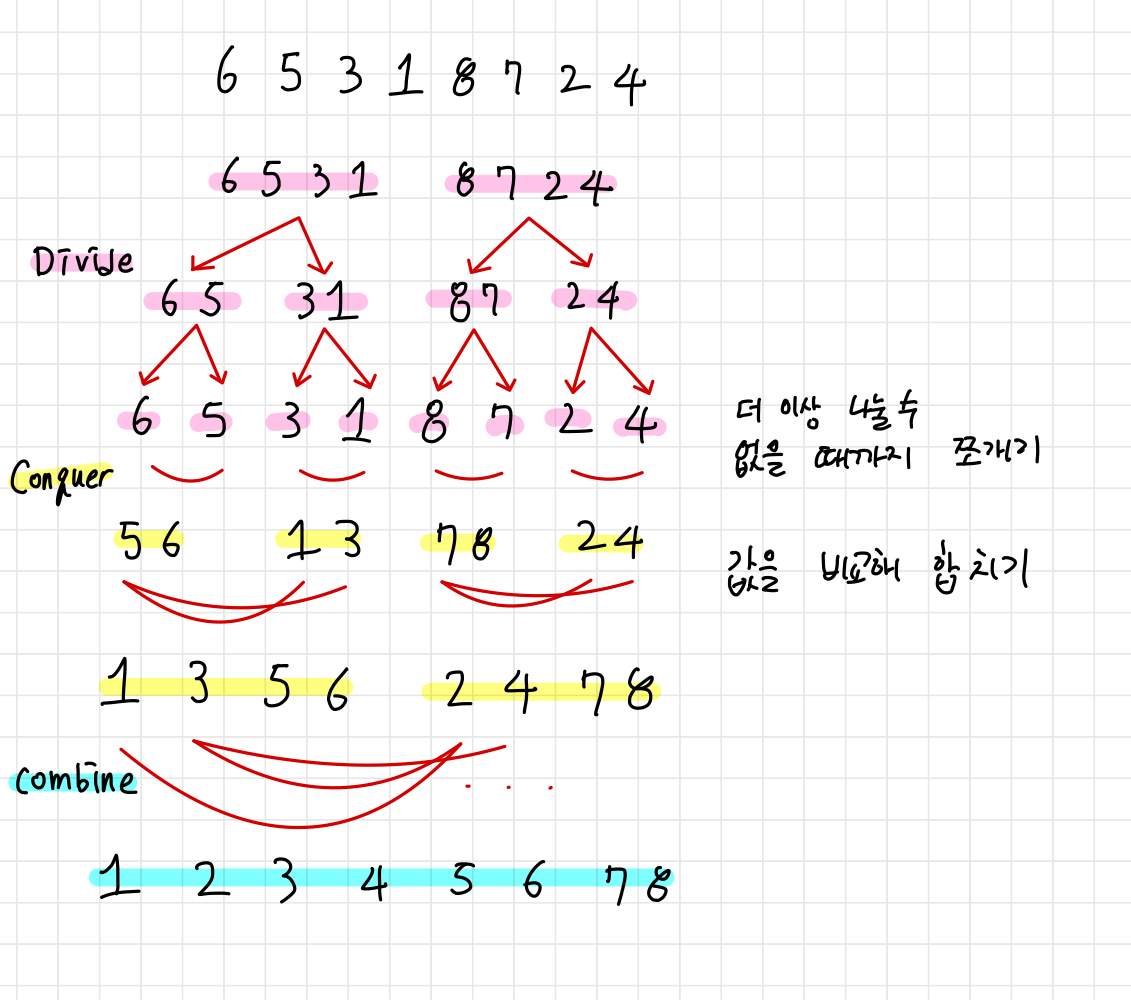 6 5 3 1 8 7 2 4
6 5 3 1 8 7 2 4
Divide
6 5 3 1 8 7 2 4
6 5 3 1 8 7 2 4
더 이상 나눌 수
없을 때까지 쪼개기
Conquer
5 6 1 3 7 8 2 4
값을 비교해 합치기
1 3 5 6 2 4 7 8
combine
. . .
1 2 3 4 5 6 7 8